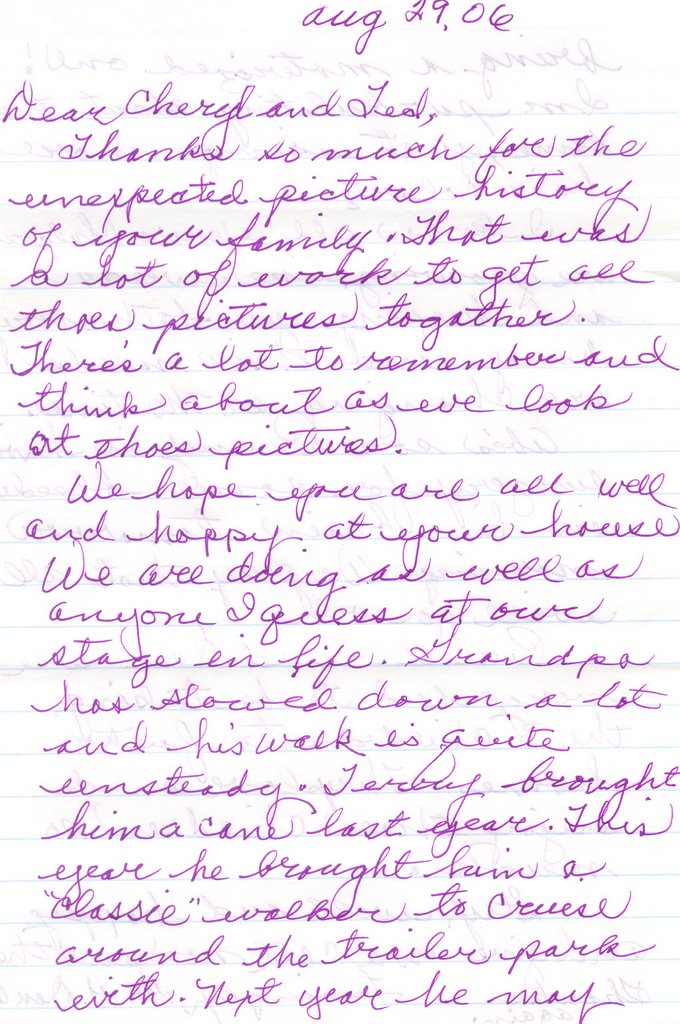 Aug 29, 06
Dear Cheryl and Ted,
Thanks so much for the
unexpected picture history
of your family. That was
a lot of work to get all
thoes pictures togather.
There's a lot to remember and
think about as we look
at thoes pictures.
We hope you are all well
and happy at your house
We are doing as well as
anyone I guess at our
stage in life. Grandpa
has slowed down a lot
and his walk is quite
unsteady. Terry brought
him a cane last year. This
year he brought him a
"classic" walker to cruise
around the trailer park
with. Next year he may